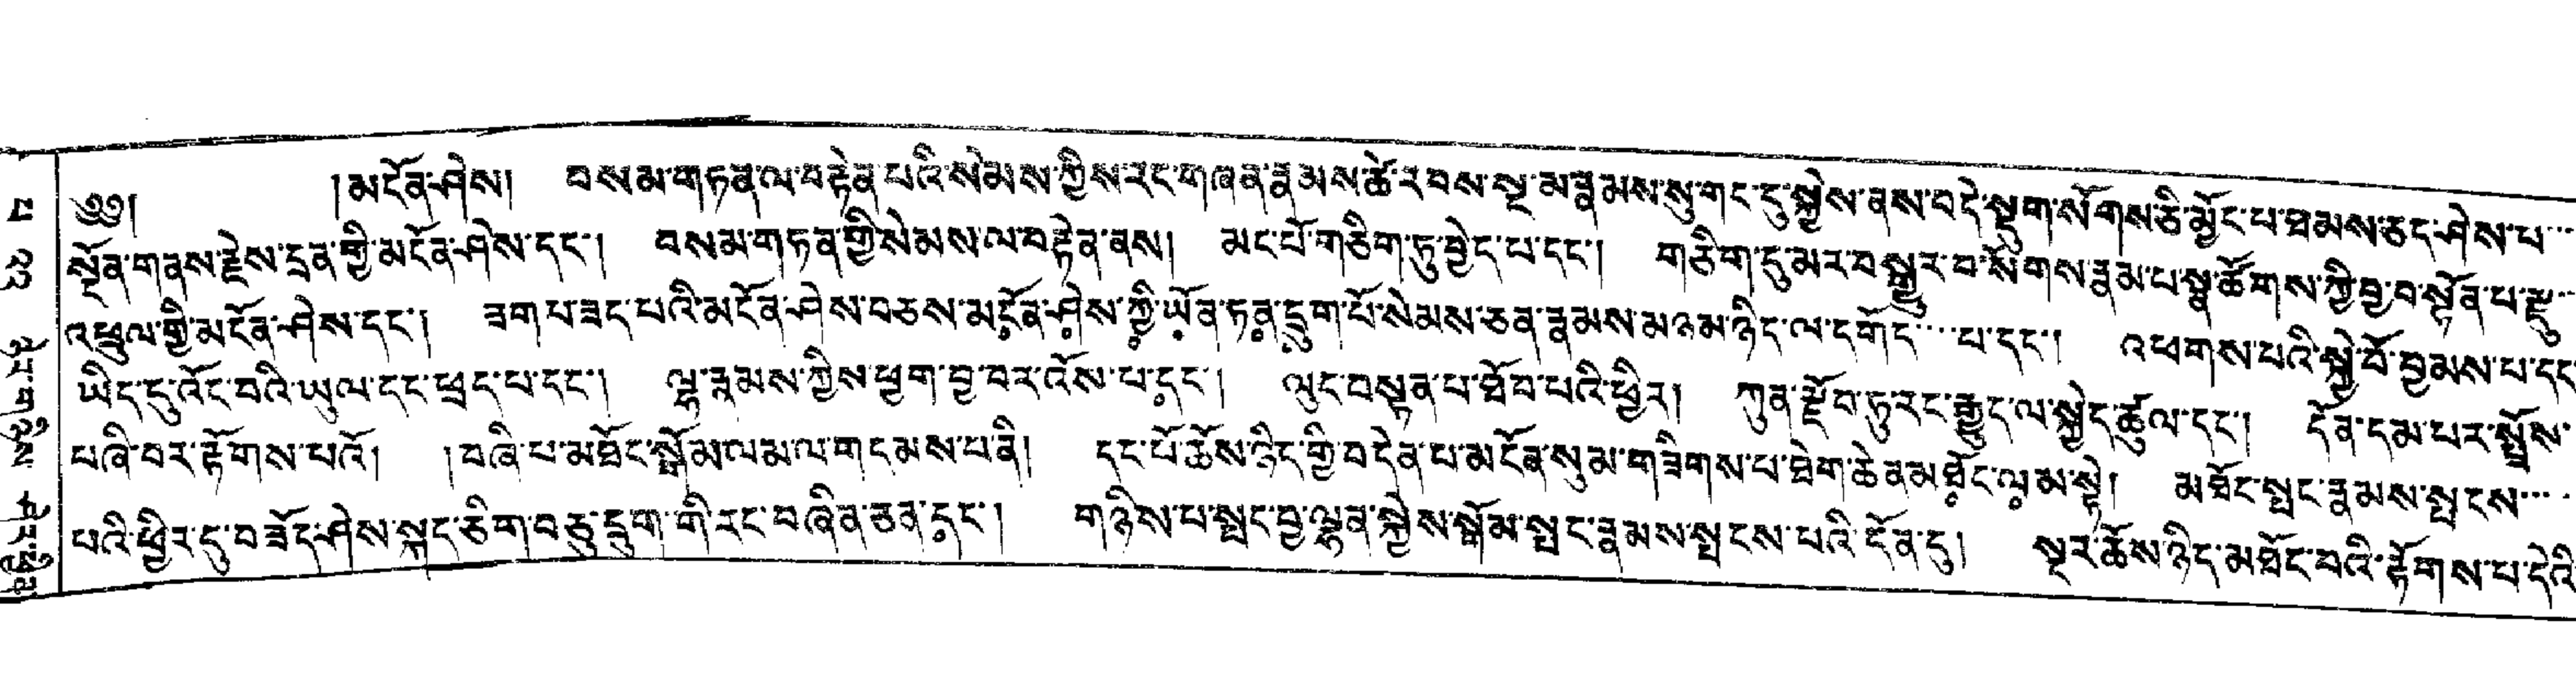 ༄༅། །མངོན་ཤེས། བསམ་གཏན་ལ་བརྟེན་པའི་སེམས་ཀྱིས་རང་གཞན་རྣམས་ཚེ་རབས་སྔ་མ་རྣམས་སུ་གང་དུ་སྐྱེས་ནས་བདེ་སྡུག་སོགས་ཅི་མྱོང་པ་ཐམས་ཅད་ཤེས་པ་
སྔོན་གནས་རྗེས་དྲན་གྱི་མངོན་ཤེས་དང༌། བསམ་གཏན་གྱི་སེམས་ལ་བརྟེན་ནས། མང་པོ་གཅིག་ཏུ་བྱེད་པ་དང༌། གཅིག་དུ་མར་བསྒྱུར་བ་སོགས་རྣམ་པ་སྣ་ཚོགས་ཀྱི་བྱ་བ་སྟོན་པ་རྫུ་
འཕྲུལ་གྱི་མངོན་ཤེས་དང༌། ཟག་པ་ཟད་པའི་མངོན་ཤེས་བཅས་མངོན་ཤེས་ཀྱི་ཡོན་ཏན་དྲུག་པོ་སེམས་ཅན་རྣམས་མཉམ་ཉིད་ལ་དགོད་པ་དང༌། འཕགས་པའི་སྐྱེ་བོ་བྱམས་པ་དང
ཡིད་དུ་འོང་བའི་ཡུལ་དང་ཕྲད་པ་དང༌། ལྷ་རྣམས་ཀྱིས་ཕྱག་བྱ་བར་འོས་པ་དང༌། ལུང་བསྟན་པ་ཐོབ་པའི་ཕྱིར། ཀུན་རྫོབ་ཏུ་རང་རྒྱུད་ལ་སྐྱེད་ཚུལ་དང༌། དོན་དམ་པར་སྤྲོས་
པཞི་བར་རྟོགས་པའོ། །བཞི་པ་མཐོང་སྒོམ་ལམ་ལ་གདམས་པ་ནི། དང་པོ་ཆོས་ཉིད་ཀྱི་བདེན་པ་མངོན་སུམ་གཟིགས་པ་ཐེག་ཆེན་མཐོང་ལམ་སྟེ། མཐོང་སྤང་རྣམས་སྤངས་
པའི་ཕྱིར་དུ་བཟོད་ཤེས་སྐད་ཅིག་བཅུ་དྲུག་གི་རང་བཞིན་ཅན་དང༌། གཉིས་པ་སྤང་བྱ་ལྷན་སྐྱེས་སྒོམ་སྤང་རྣམས་སྤངས་པའི་དོན་དུ། སྔར་ཆོས་ཉིད་མཐོང་བའི་རྟོགས་པ་དེའི